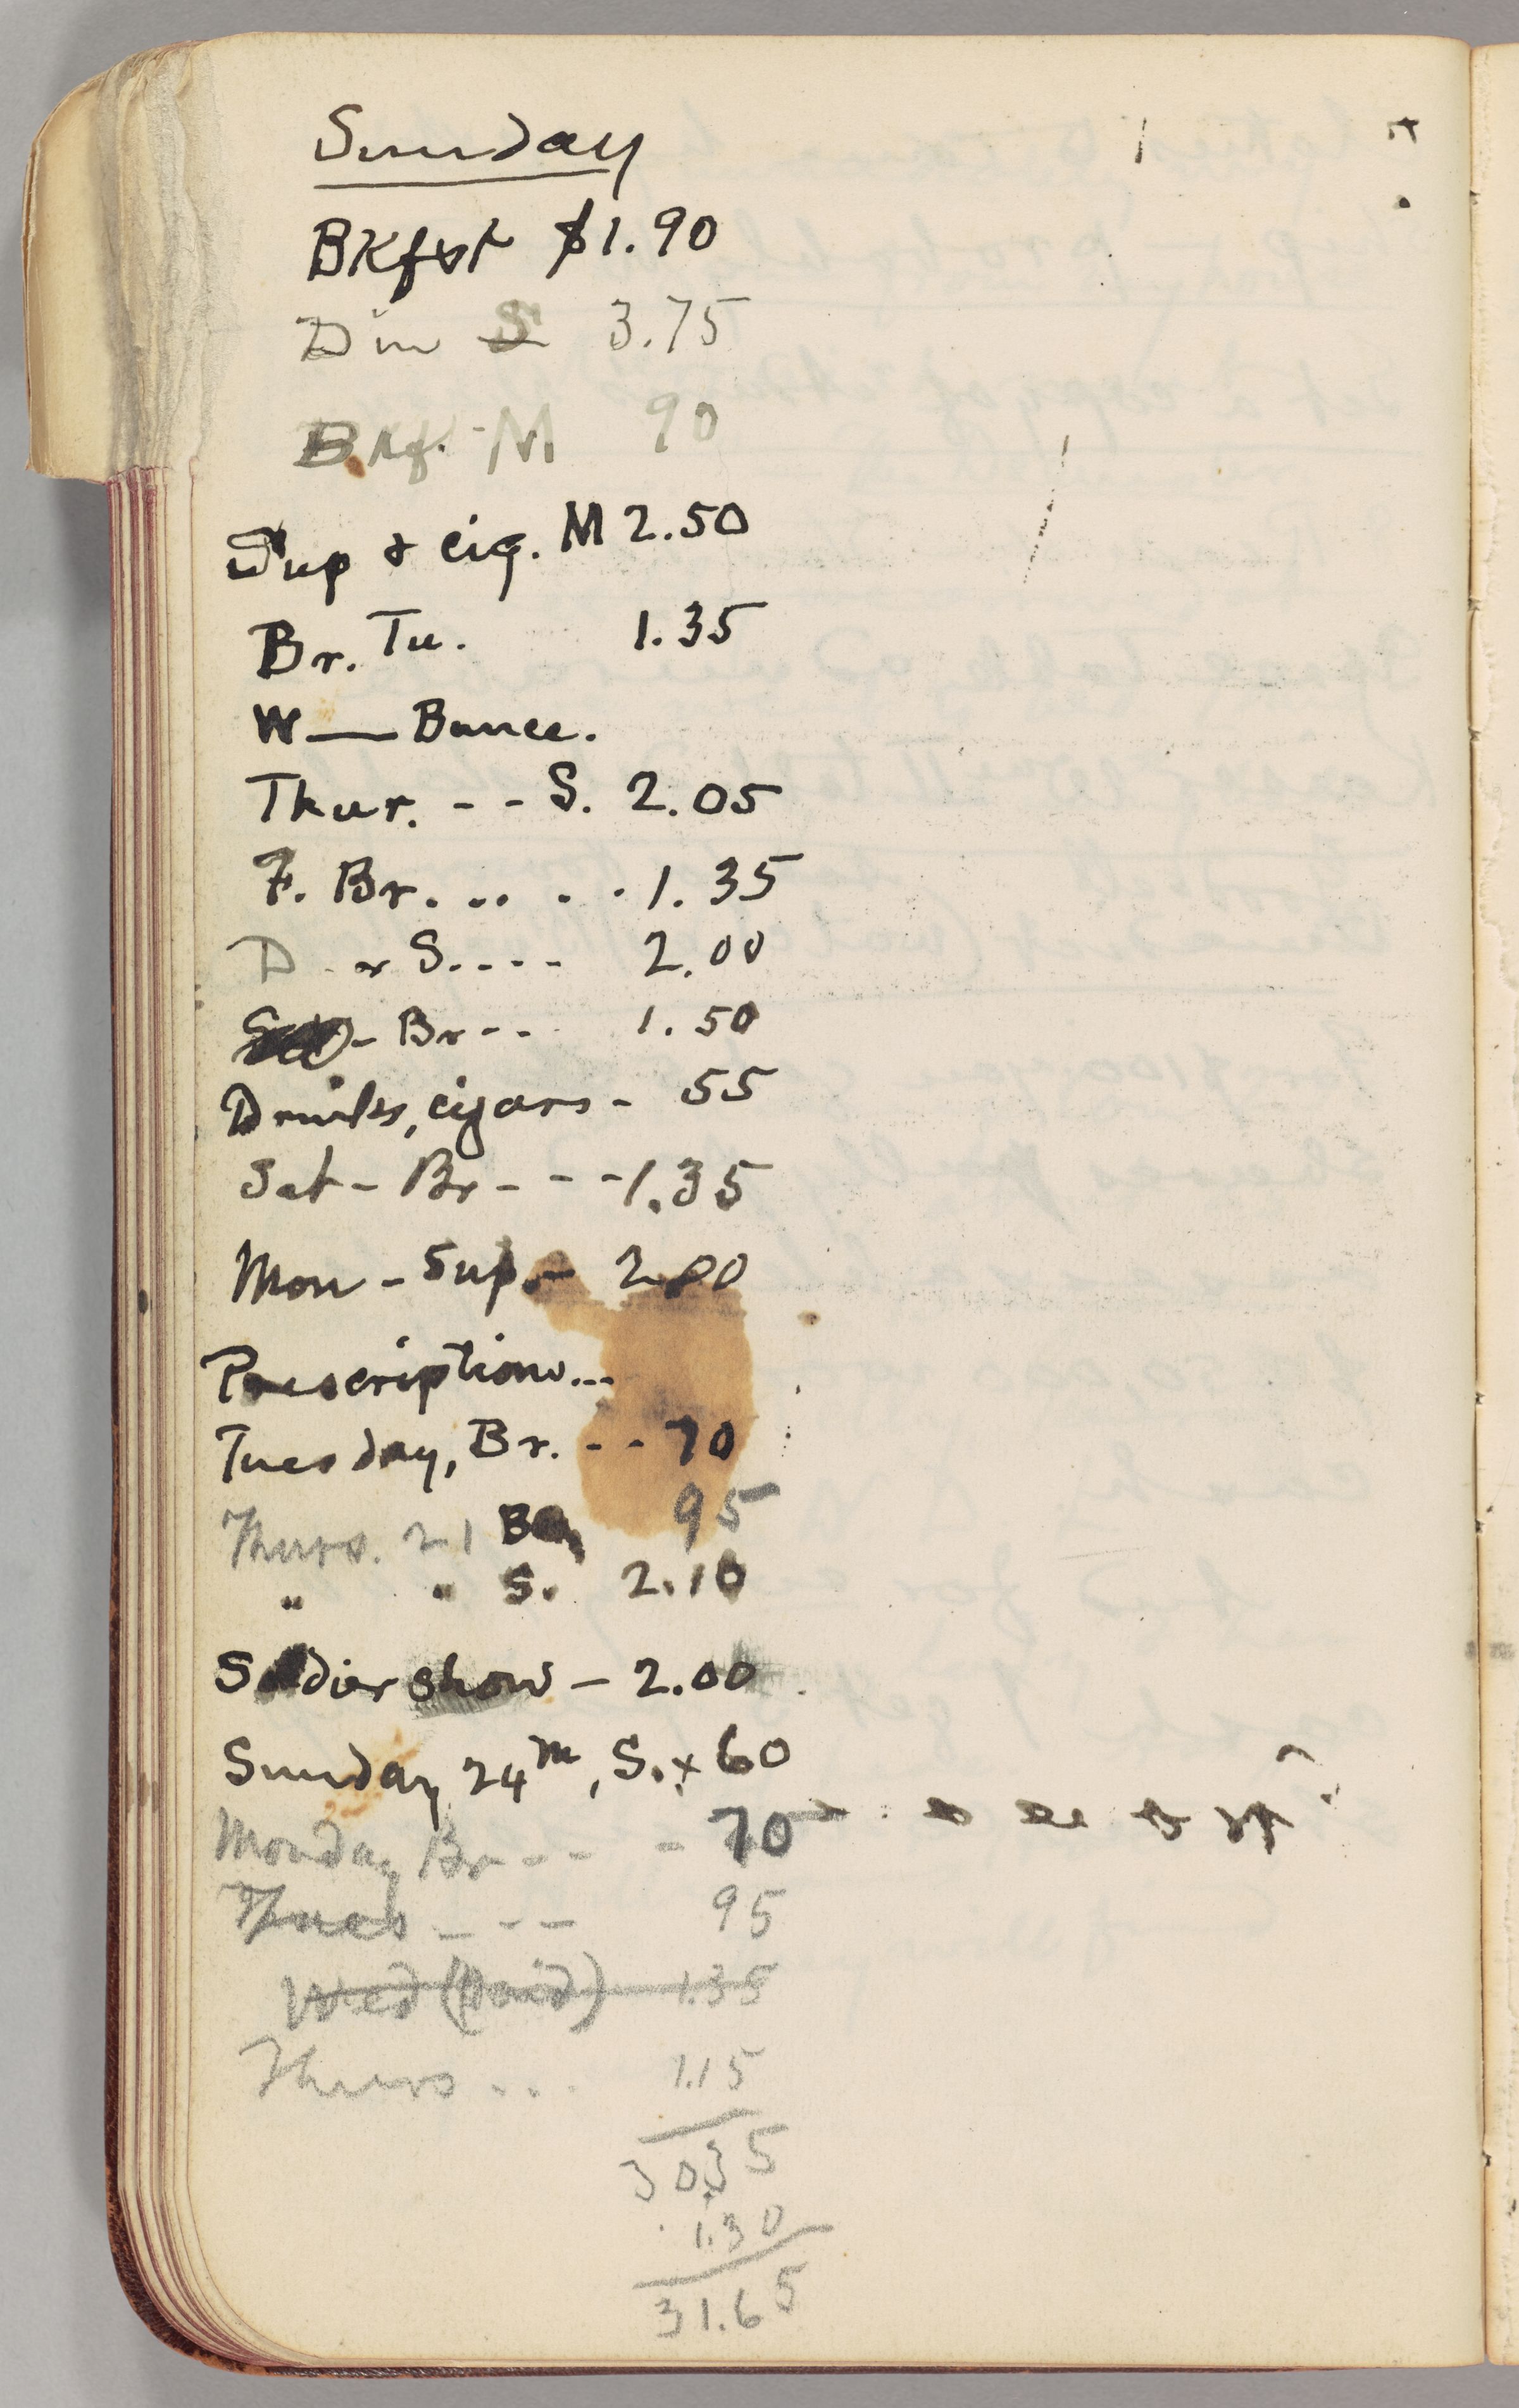 Sunday
BKfst $1.90
Din S 3.75
Bkf. - M 90
Sup & cig. M 2.50
Br. Tu. 1.35
W — Bunce.
Thur. - - S. 2.05
F. Br. .. . . 1.35
D - & S. - - - 2.00
- Br - - 1.50
Drinks, cigars - 55
Sat - Br - - - 1.35
Mon - Sup. - 2.00
Prescription...
Tuesday, Br. - - 70
Thurs. 21 95
" " S. 2.10
Soldier show - 2.00
Sunday 24th, S. x 60
Monday Br - - - 70
Tues - - - 95
Wed (Paid) 1.35
Thurs ... 1.15
30.35
1.30
31.65